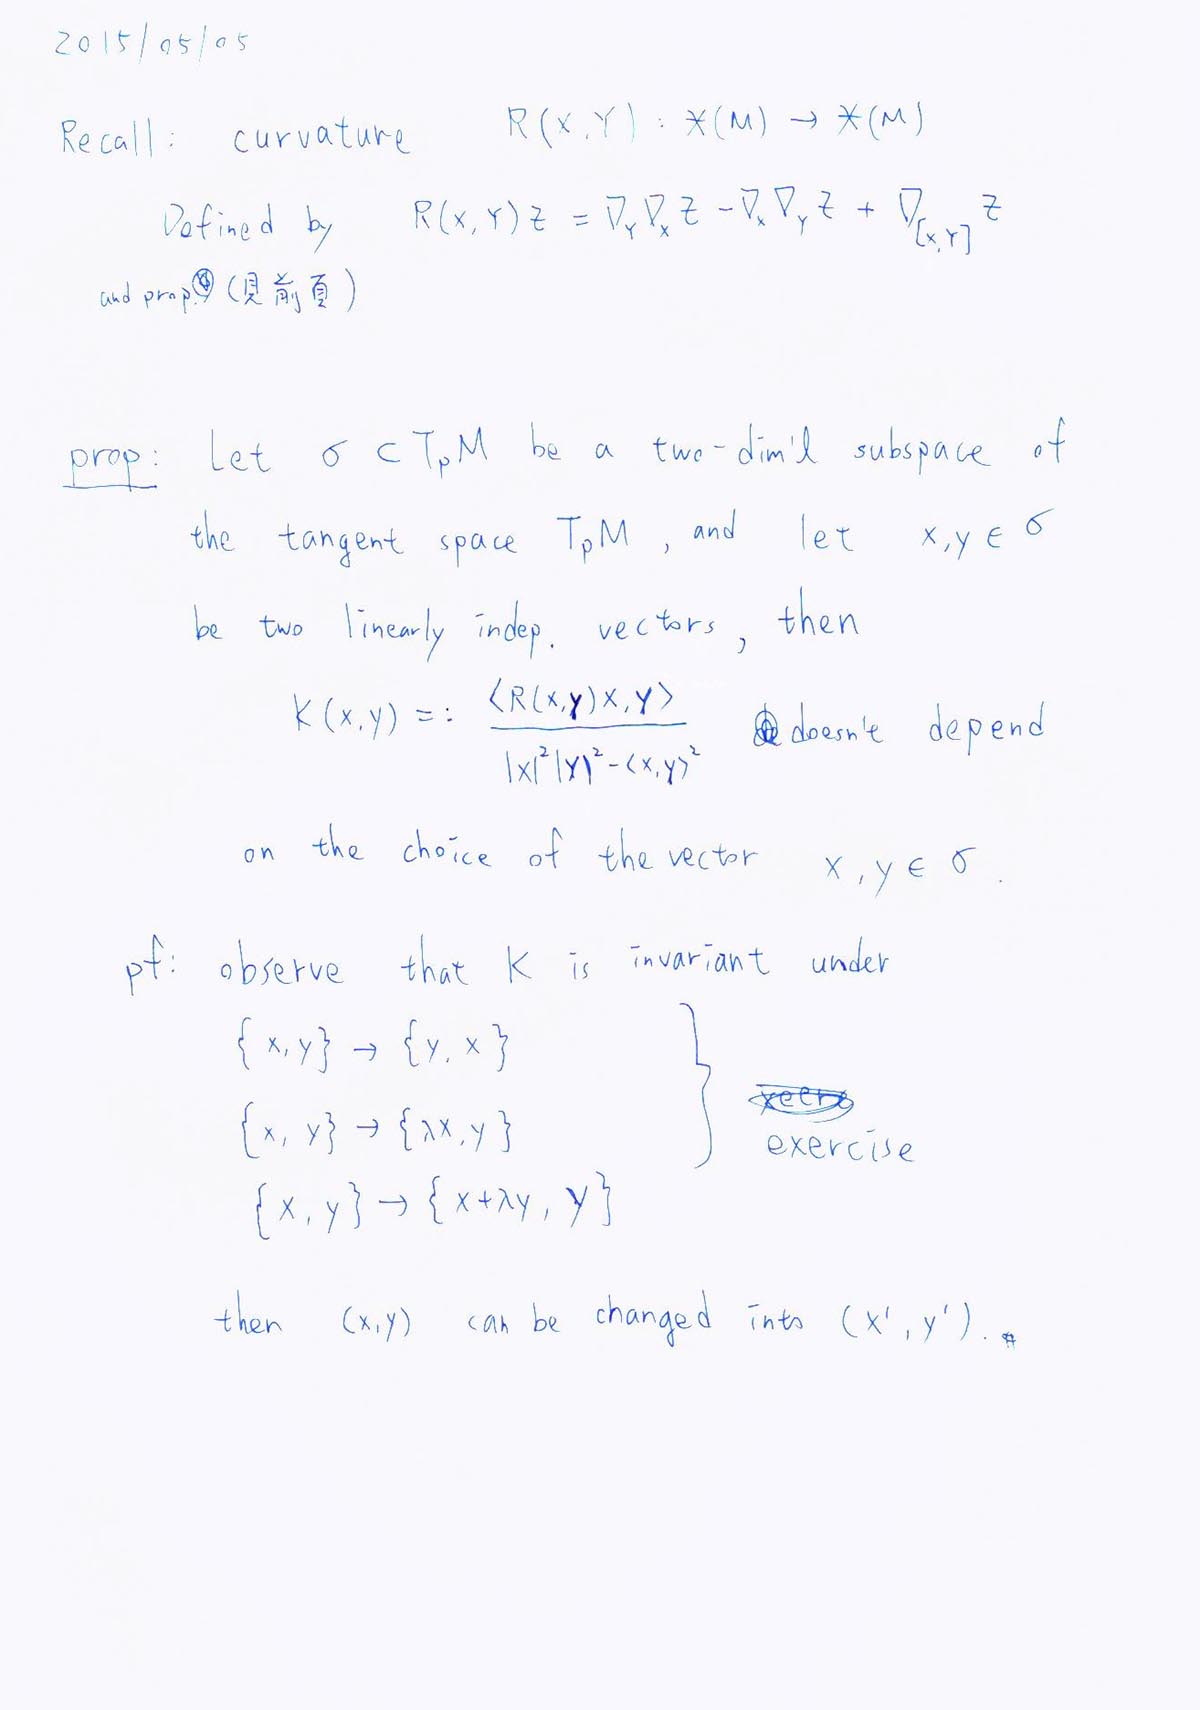 2015/05/05
Recall: curvature R(X,Y): 𝔛(M) → 𝔛(M)
Defined by R(X,Y)Z = ∇_Y ∇_X Z - ∇_X ∇_Y Z + ∇_[X,Y] Z
and prop. (見前頁)
prop: Let σ ⊂ T_pM be a two-dim'l subspace of
the tangent space T_pM, and let x,y ∈ σ
be two linearly indep. vectors, then
K(x,y) =: <R(x,y)x,y> / |x|²|y|² - <x,y>² doesn't depend
on the choice of the vector x,y ∈ σ.
pf: observe that K is invariant under
{x,y} → {y,x}
{x,y} → {λx,y}
exercise
{x,y} → {x+λy, y}
then (x,y) can be changed into (x',y'). #